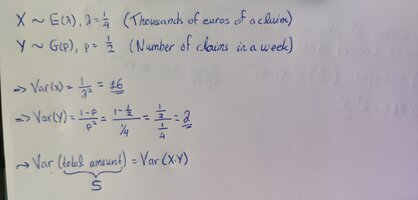 X ~ E(λ), λ = 1/4 (Thousands of euros of a claim)
Y ~ G(p), p = 1/2 (Number of claims in a week)
=> Var(x) = 1/λ² = 16
=> Var(Y) = 1-p/p² = 1-1/2 / 1/4 = 1/2 / 1/4 = 2
→ Var (total amount) = Var(X·Y)
S